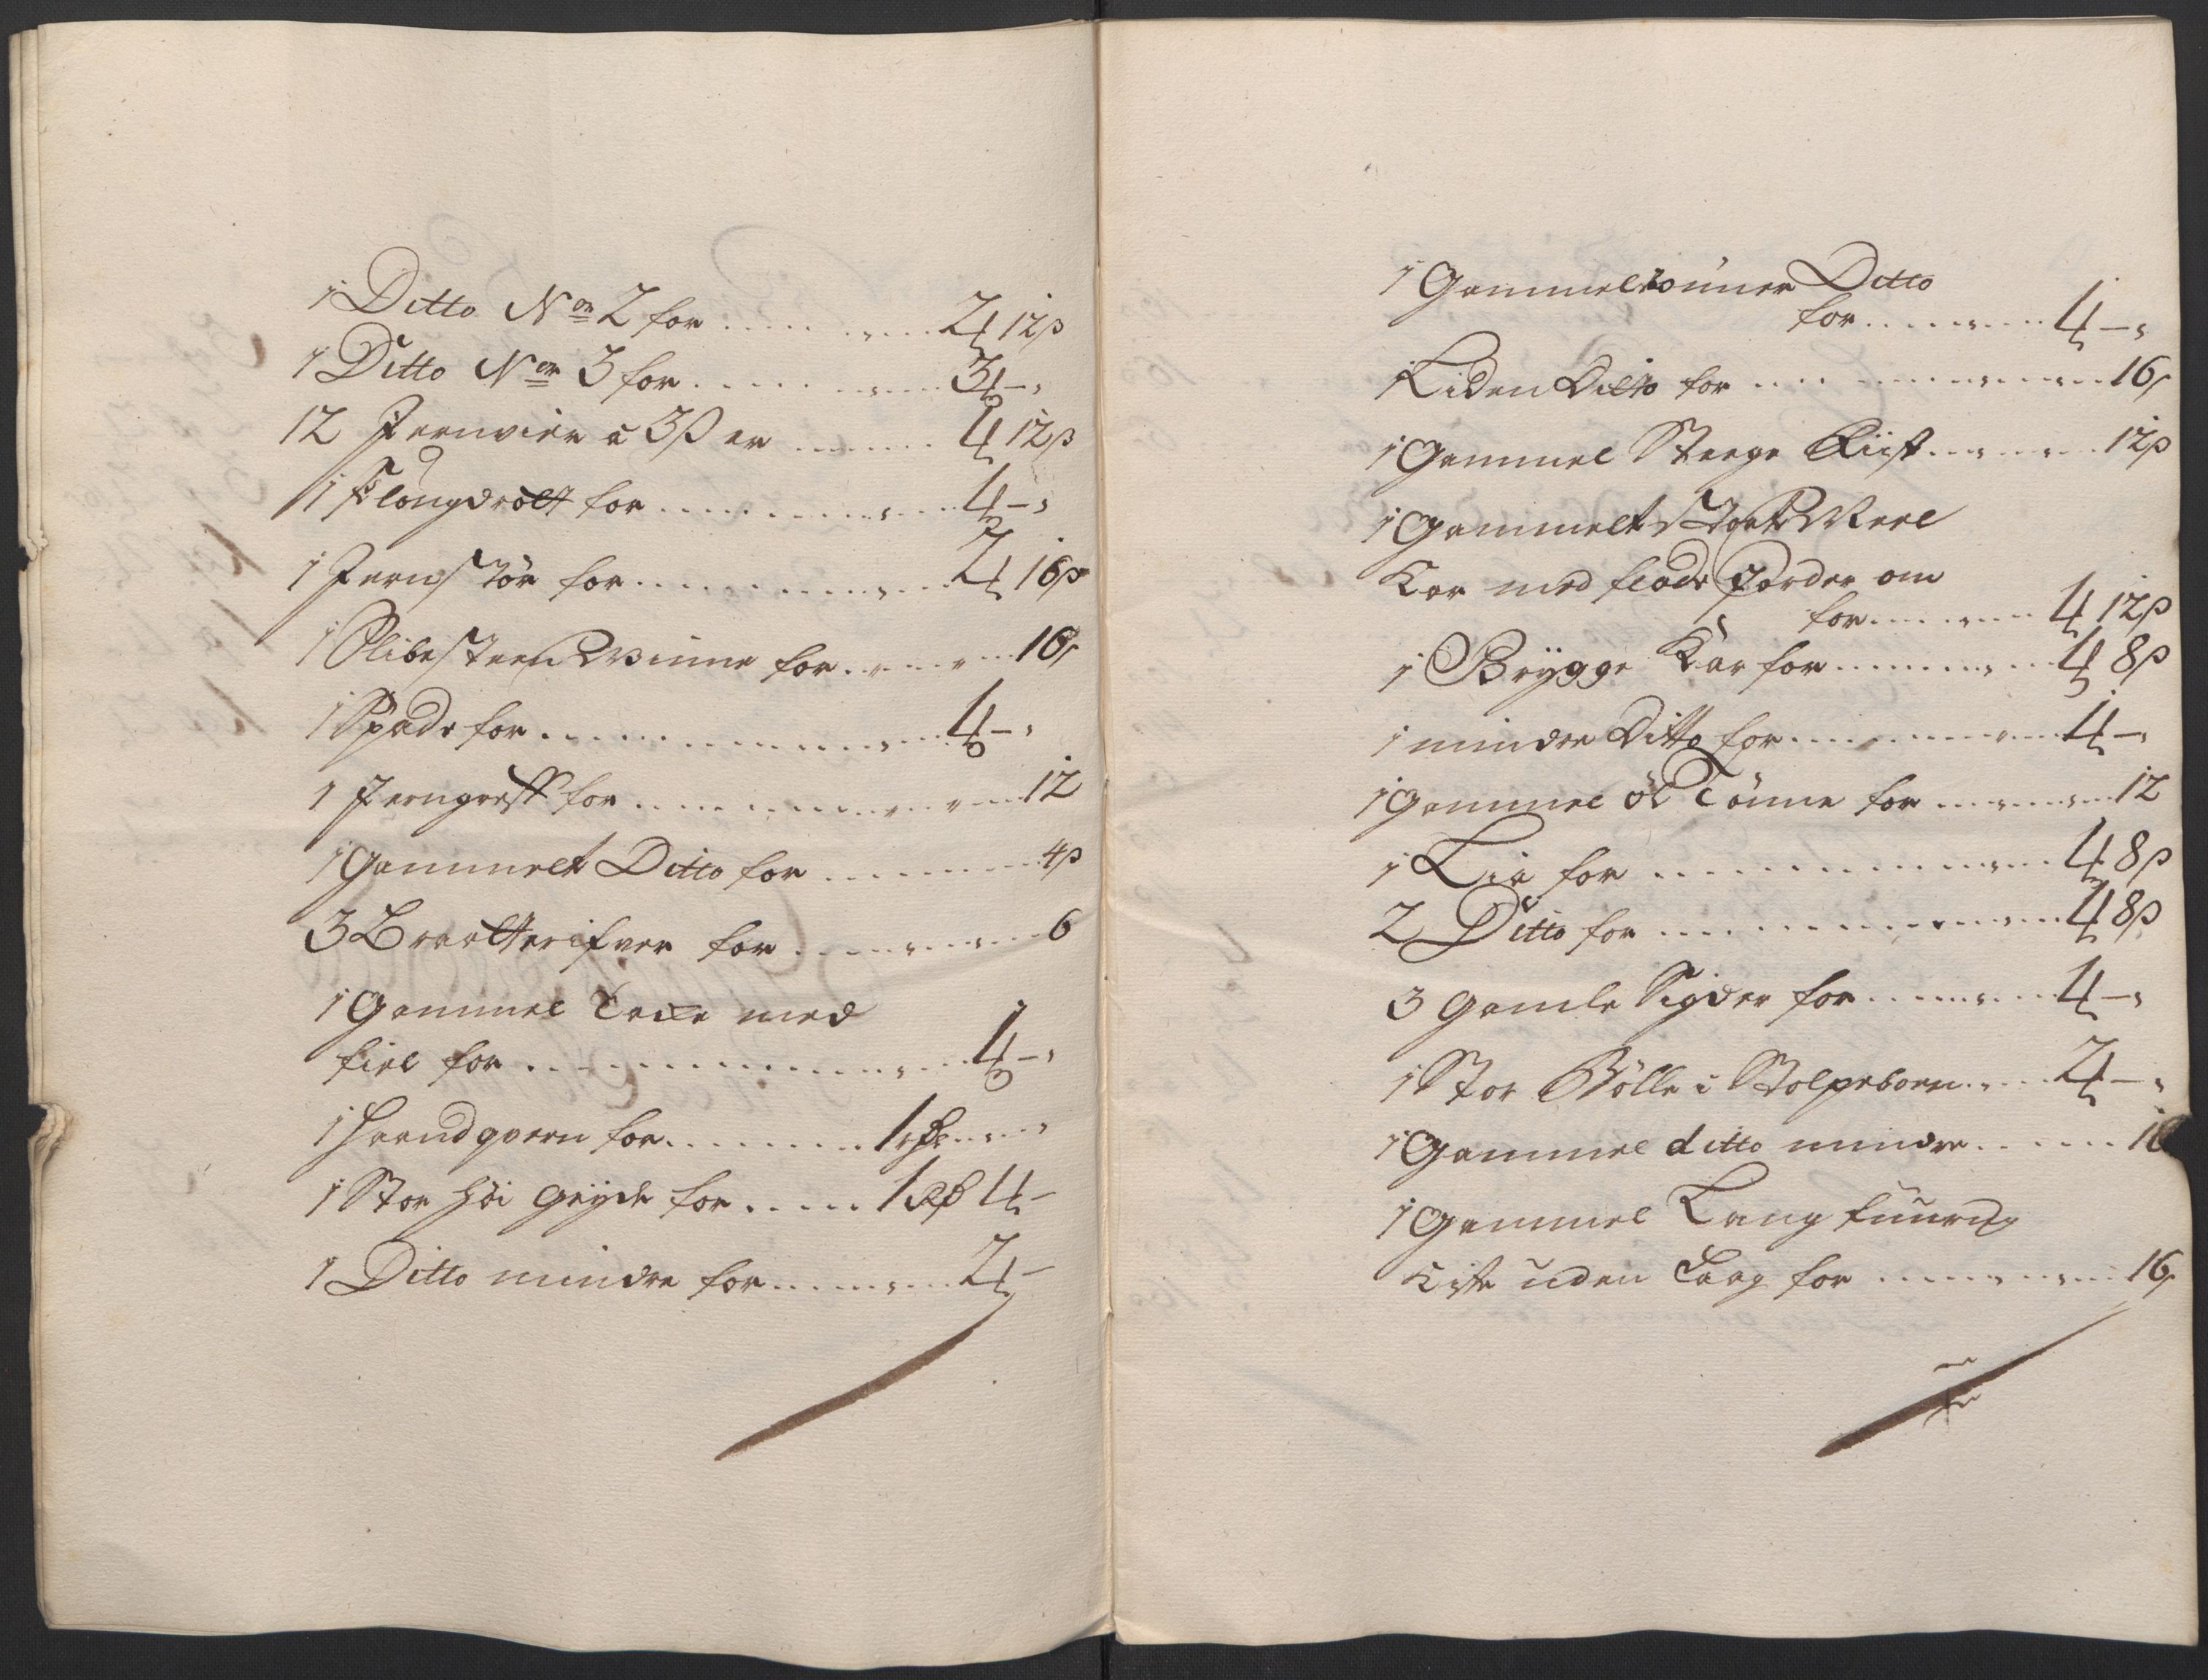 1 Ditto No 2 for ........ 2 4 12 ß
1 Ditto No 3 for ........ 3 4 - "
12 Jernvier a 3 ß er ...... 1 4 12 ß
1 for ........ 1 4 - "
1 Jernstør for ........ 2 4 16 ß
1 Slibesteen for ...... 16 "
1 Spade for ........ 1 4 - "
1 Jerngreff for ........ 12
1 Gammelt Ditto for ........ 4 ß
3 for ........ 6
1 Gammel med
fiel for ........ 1 4 - "
1 Haandqvern for ........ 1 rdr ....
1 Stor Høi Gryde for ..... 1 Rd 1 4 -
1 Ditto mindre for ........ 2 4 -
1 Gammel Ditto
for ........ 1 4 - "
1 Liden Ditto for ........ 16 "
1 Gammel Steege Riist ...... 12 ß
1 Gammelt Stort
Kar med Jorder om
for ...... 1 4 12 ß
1 Brygge Kar for ........ 1 4 8 ß
1 mindre Ditto for ........ 1 4 - "
1 Gammel øl Tønne for ...... 12
1 Lia for ........ 1 4 8 ß
2 Ditto for ........ 1 4 8 ß
3 gamle Sigder for ........ 1 4 - "
1 Stor Bølle i Stolpeboen .... 2 4 - "
1 Gammel ditto mindre ......
1 Gammel Lang
Kiste uden Laag for ........ 16 "